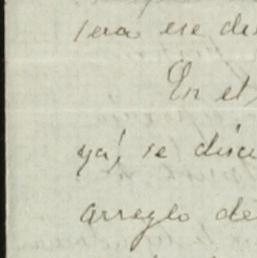 será ese de
En el
ya, se disc
arreglo de